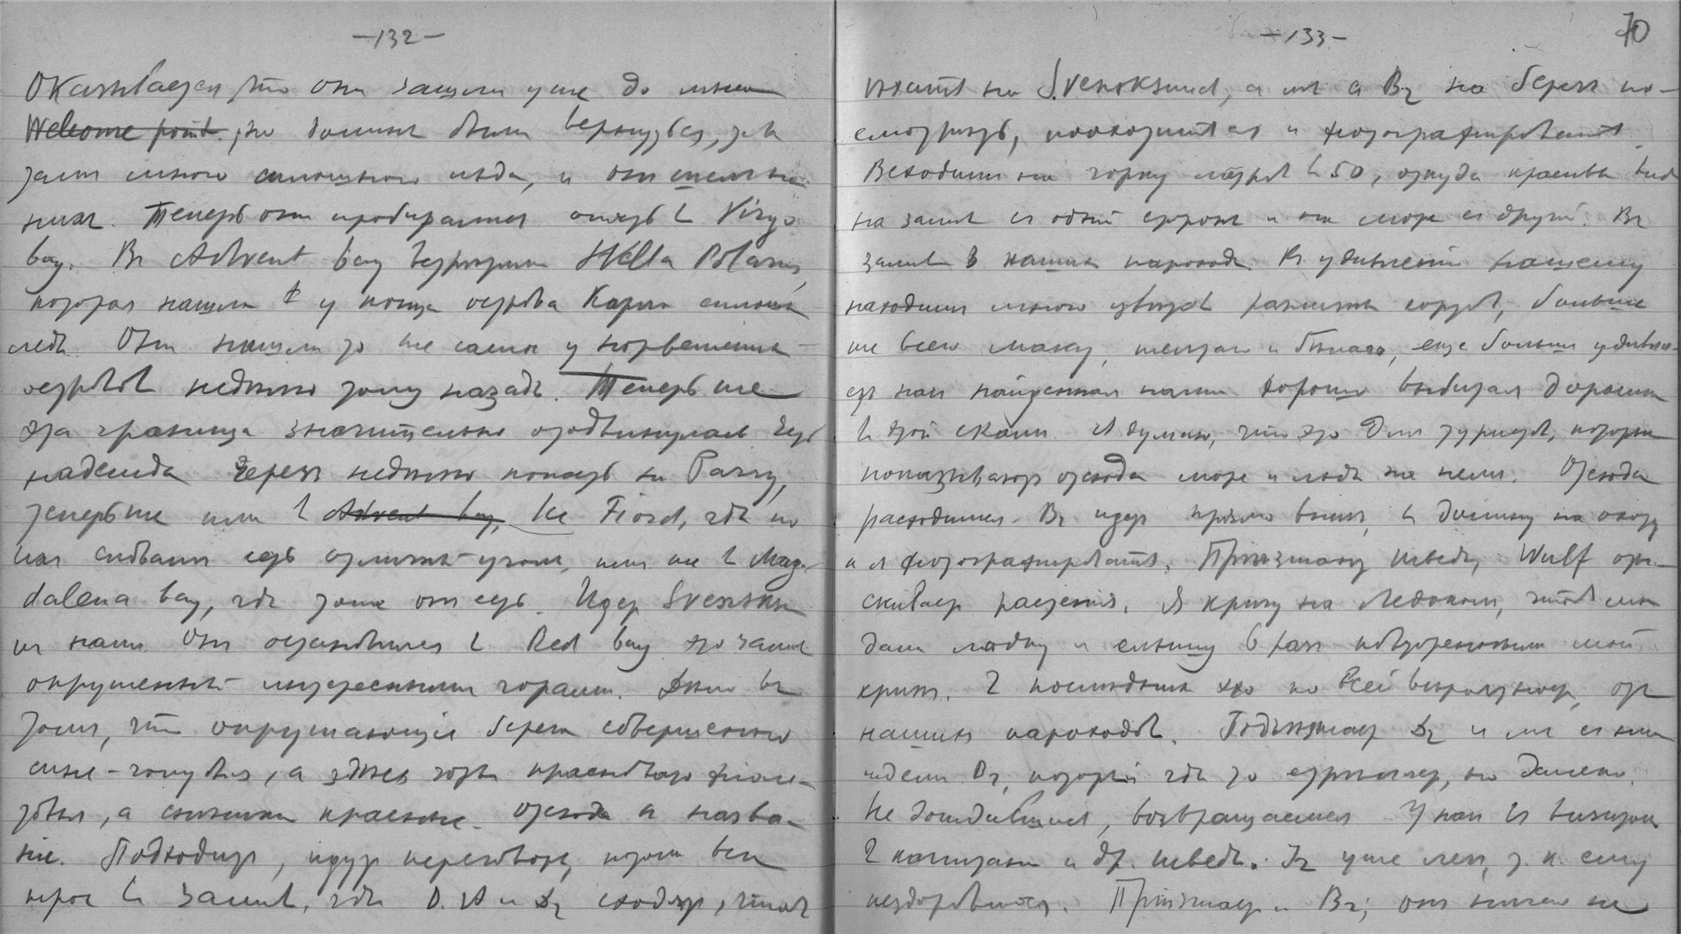 -132-
Оказывается, что они зашли уже до мыса
Welcome point, но должны были вернуться, т.к.
там много сплошного льда, и они шельма
ними. Теперь они пробираются опять в Virgo
bay. Въ Advent bay встретили Stella Polaris,
которая нашла у конца острова Карла сплошной
ледъ. Они нашли то же самое у норвежских
островов недѣлю тому назадъ. Теперь же
эта граница значительно отодвинулась. Есть
надежда через недѣлю попасть на Parry,
теперь же или в Advent bay, Ice Fiord, гдѣ по
их словамъ есть отличный уголь, или же в Mag-
dalena bay, гдѣ тоже он есть. Идет Svensksund
и с нами. Они остановились в Red bay это залив
окруженный интересными горами. Дѣло въ
том, что окружающие берега совершенно
сине-голубые, а здѣсь горы красновато фиоле-
товые, а снѣжники красные. Отсюда и назва-
ніе. Подходит, идут переговоры, потом вся
в залив, гдѣ D. A и Dr сходят, чтоб
-133-
70
ѣхать на Svensksund, а мы с Вг на берег по-
смотрѣть, поохотиться и фотографировать.
Всходим на горку метров в 50, откуда красивый вид
на залив с одной стороны и на море с другой. Въ
залив 3 наших парохода. Къ удивленію нашему
находим много цвѣтов разных сортов, больше
же всего маку, желтаго и бѣлаго, еще больше удивляет
нас найденная нами хорошо выбитая дорожка
в этой скалѣ. Я думаю, что это для туристов, которым
показывают отсюда море и льды на нем. Отсюда
расходимся. Вг идет прямо вниз, в долину на охоту
и я фотографировать. Пріѣзжают шведы, Wulf оты-
скивает растенія. Я кричу на Ледокол, чтоб мнѣ
дали лодку и слышу 6 раз повторенный мой
крик. 2 послѣднія эхо по всей вѣроятности, от
наших пароходов. Подъѣзжает Dr и мы с ним
ищем Вг, который гдѣ то стрѣляет, но далеко.
Не дождавшись, возвращаемся. У нас с визитом
2 капитана и др. шведы. Уже лег, т.к. ему
нездоровится. Пріѣзжает и Вг; он ничего не